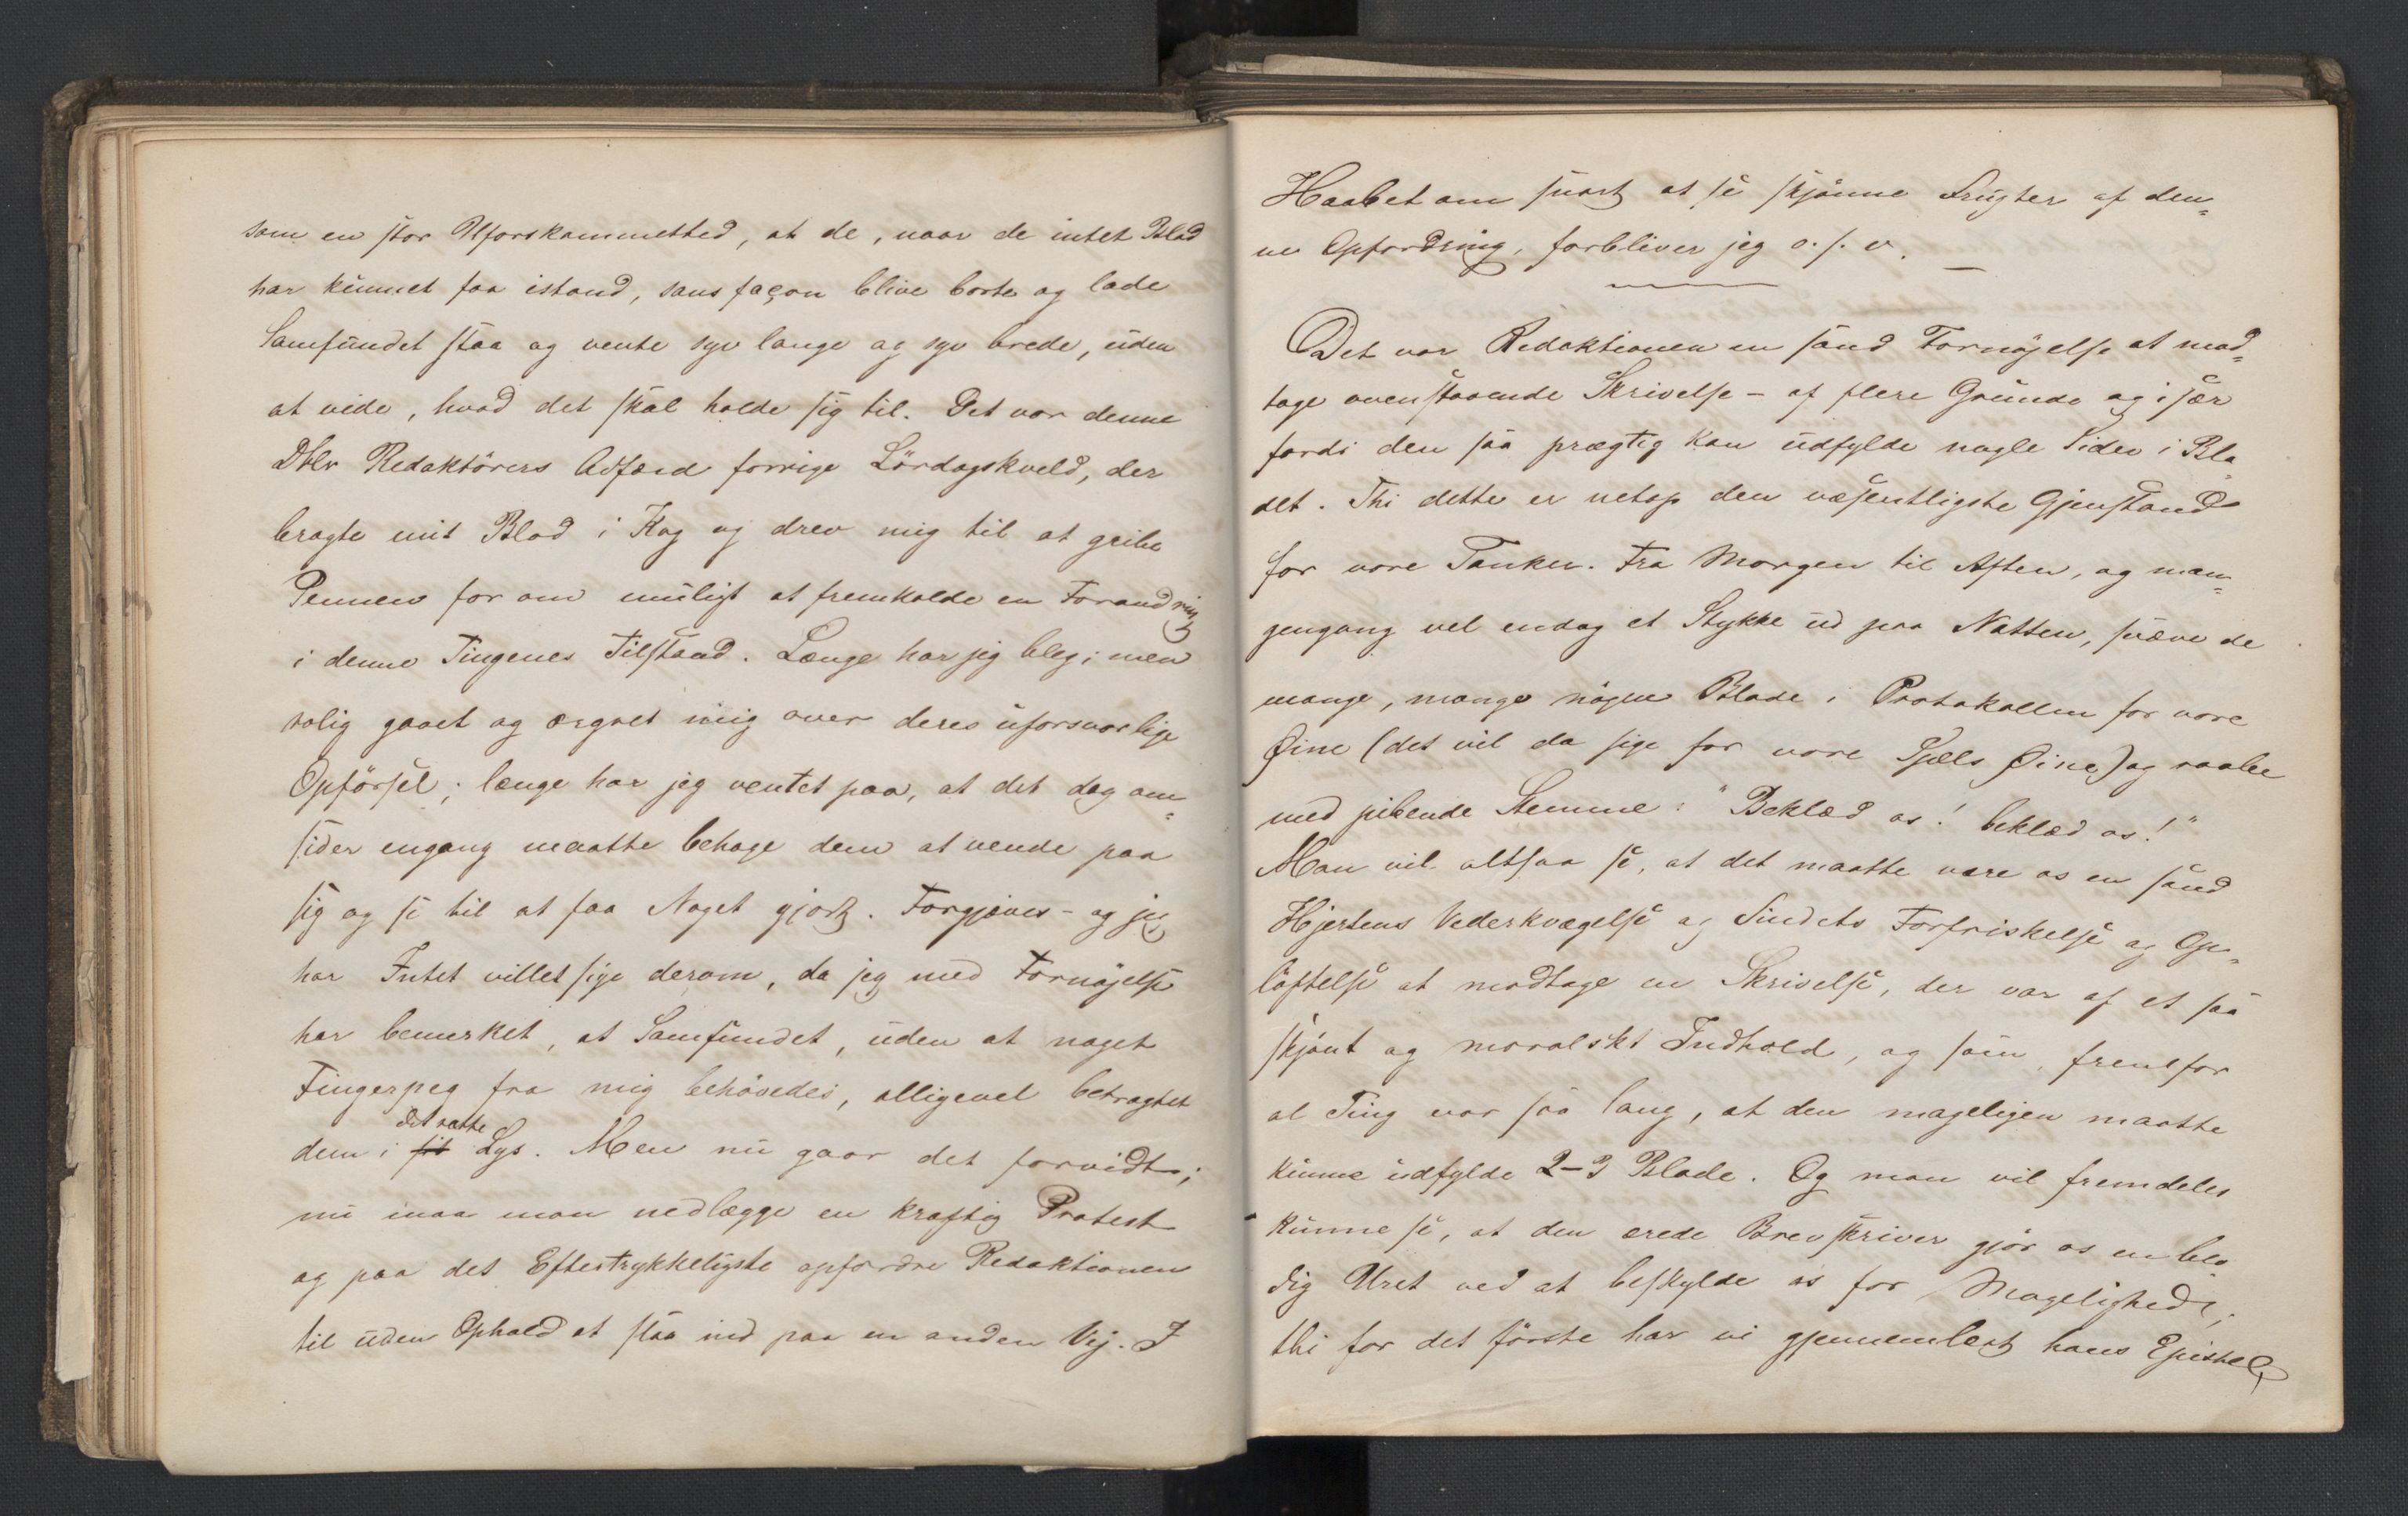 som en stor Uforskammethed, at de, naar de intet Blad
har kunnet faa istand, sans façon blive borte og lade
Samfundet staa og vente syv lange og syv brede, uden
at vide, hvad det skal holde sig til. Det var denne
DHrr Redaktörers Adfærd forrige Lördagskveld, der
bragte mit Blod i Kog og drev mig til at gribe
Pennen for om muligt at fremkalde en Forandring
i denne Tingenes Tilstand. Længe har jeg bleg; men
rolig gaaet og ærgret mig over deres uforsvarlige
Opförsel; længe har jeg ventet paa, at det dog om=
sider engang maatte behage dem at vende paa
sig og se til at faa Noget gjort. Forgjæves - og jeg
har Intet villet sige derom, da jeg med Fornöjelse
har bemerket, at Samfundet, uden at noget
Fingerpeg fra mig behövedes, alligevel betragtet
det rette
dem i sit Lys. Men nu gaar det forvidt;
nu maa man nedlægge en kraftig Protest
og paa det Eftertrykkeligste opfordre Redaktionen
til uden Ophold at slaa ind paa en anden Vej. I
Haabet om snart at se skjönne Frugter af den=
ne Opfordring, forbliver jeg o. s. v. —
Det var Redaktionen en sand Fornöjelse at mod=
tage ovenstaaende Skrivelse - af flere Grunde og især
fordi den saa prægtig kan udfylde nogle Sider i Bla=
det. Thi dette er netop den væsentligste Gjenstand
for vore Tanker. Fra Morgen til Aften, og man=
gengang vel endog et Stykke ud paa Natten, svæve de
mange, mange nögne Blade i Protokollen for vore
Øine (det vil da sige for vore Sjæls Øine) og raabe
med pibende Stemme: "Beklæd os! beklæd os!"
Man vil altsaa se, at det maatte være os en sand
Hjertens Vederkvægelse og Sindets Forfriskelse og Op=
löftelse at modtage en Skrivelse, der var af et saa
skjönt og moralskt Indhold, og som, fremfor
al Ting var saa lang, at den mageligen maatte
kunne udfylde 2-3 Blade. Og man vil fremdeles
kunne se, at den ærede Brevskriver gjör os en blo=
dig Uret ved at beskylde os for Magelighed;
thi for det förste har vi gjennemlæst hans Epistel,